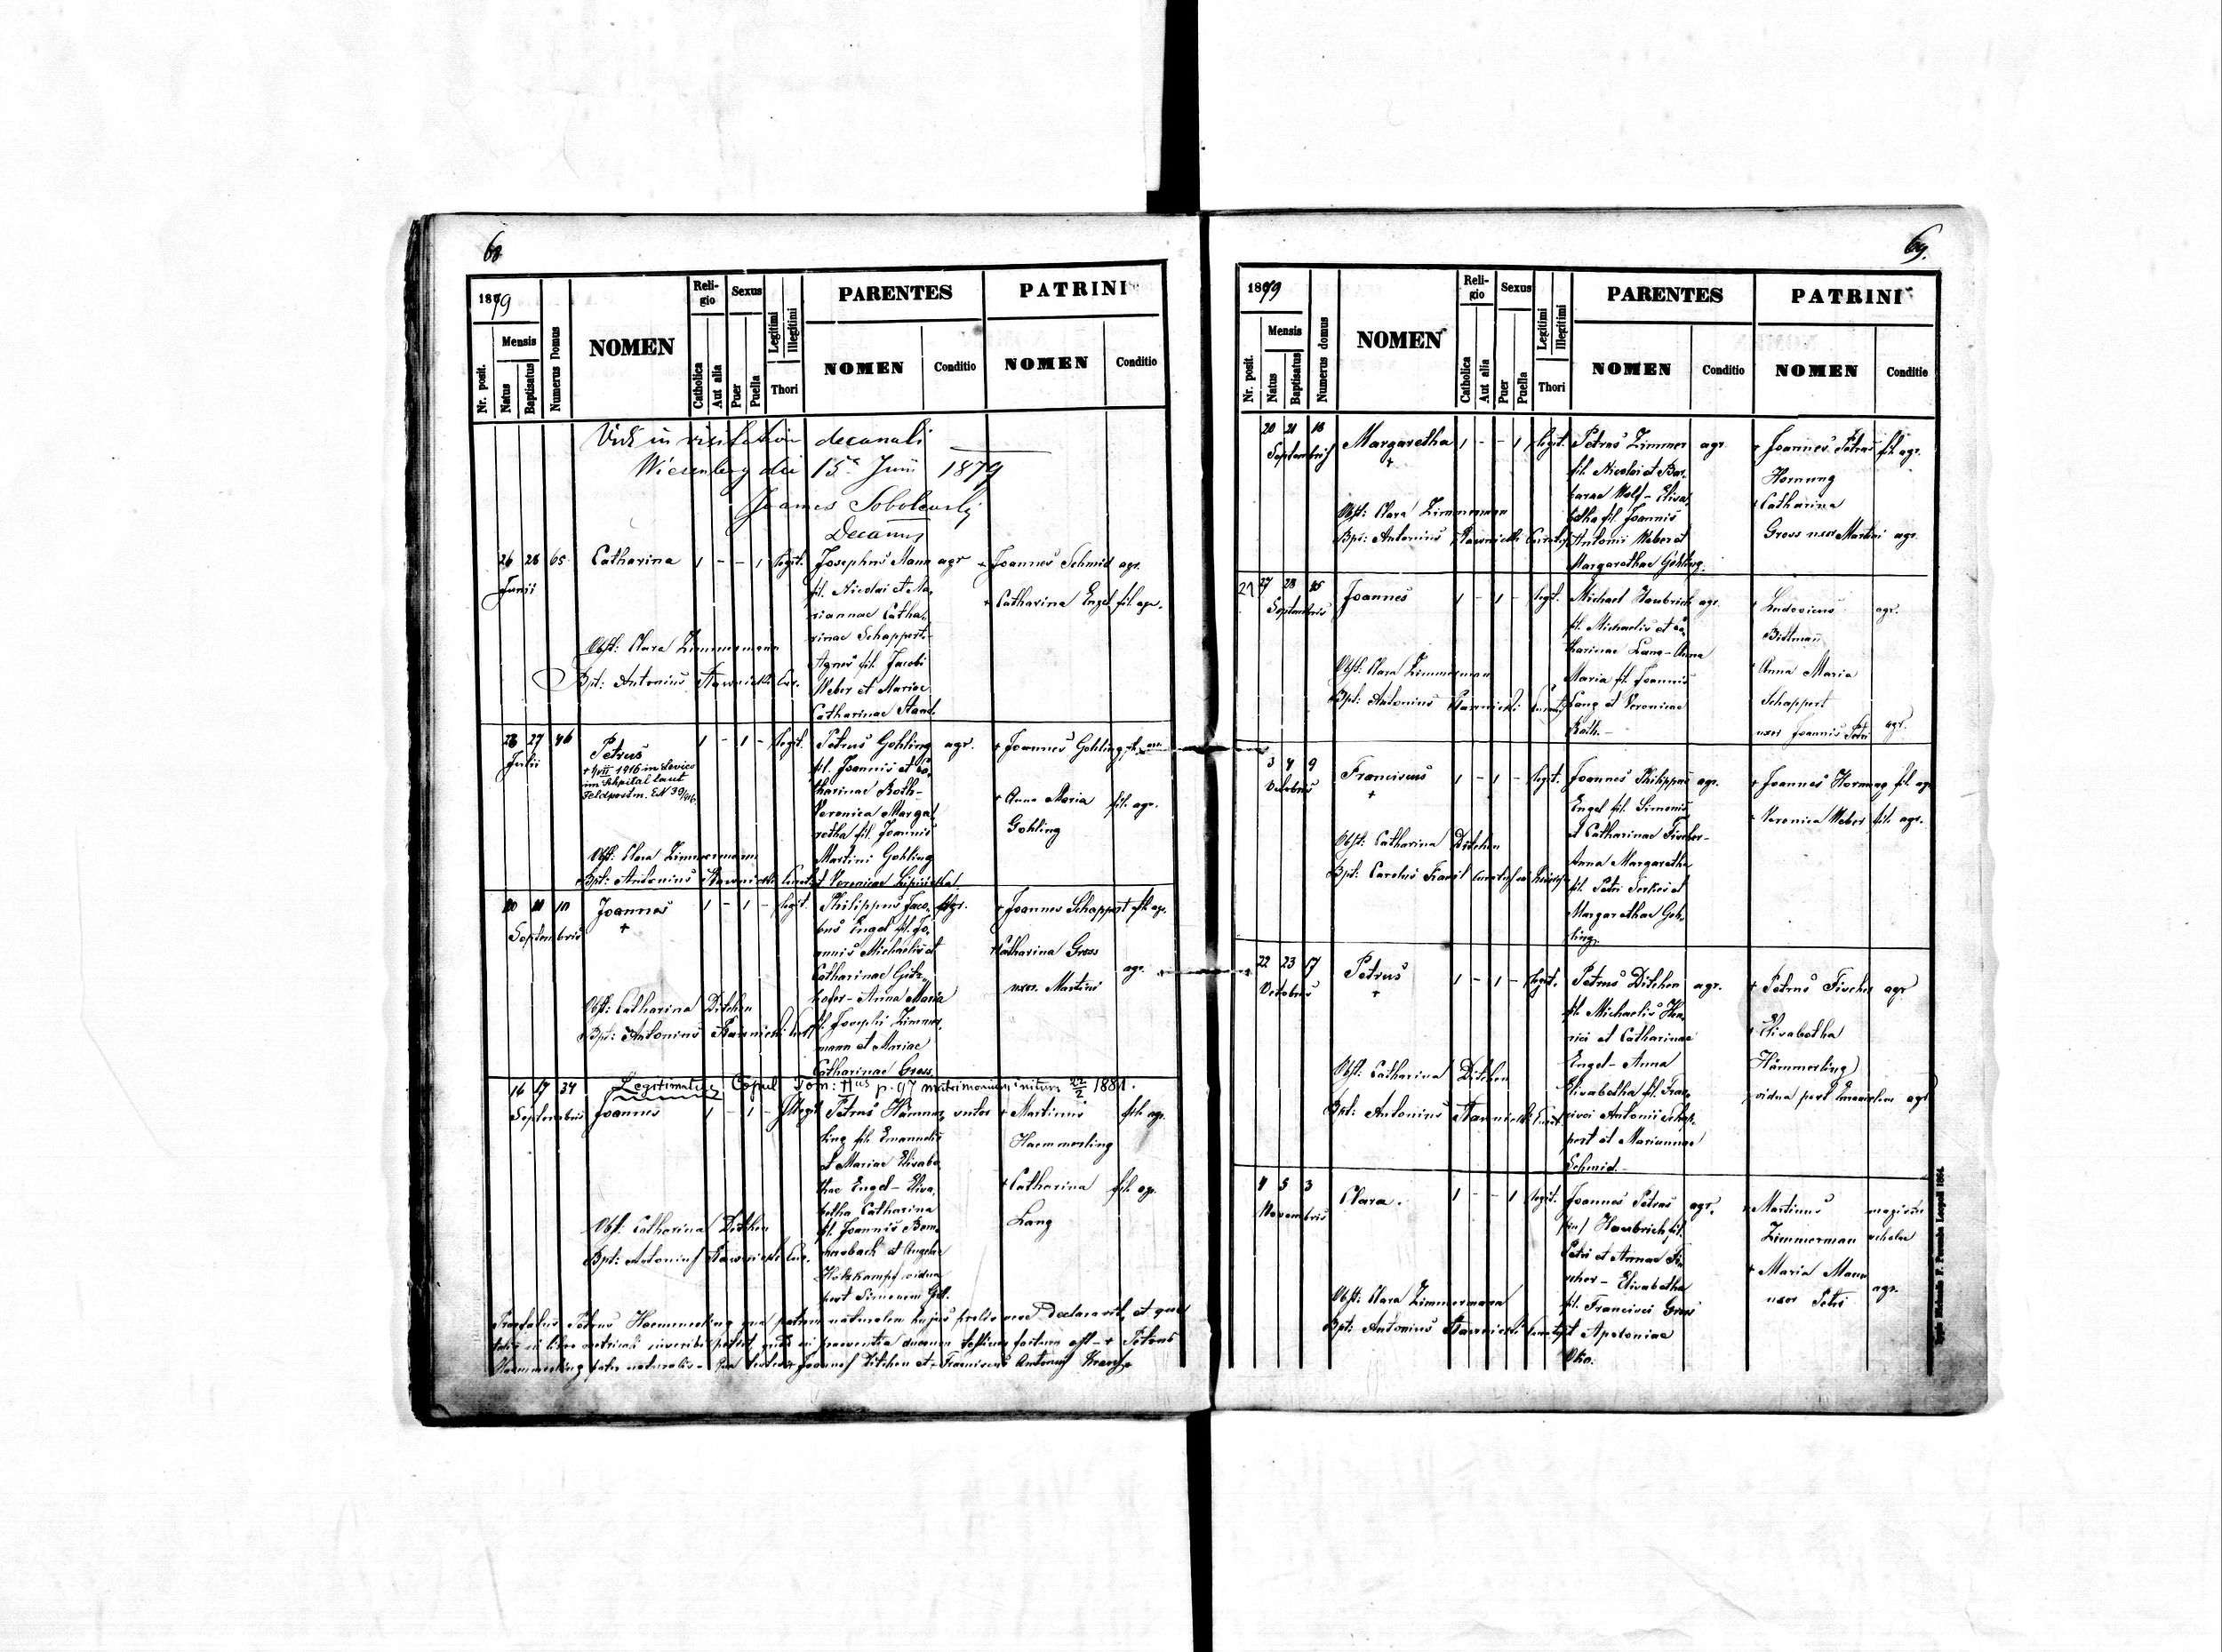 68
1879
Nr. posit.
Mensis
Natus
Baptisatus
Numerus Domus
NOMEN
Reli-
gio
Catholica
Aut alia
Sexus
Puer
Puella
Legitimi
Illegitimi
Thori
PARENTES
NOMEN
Conditio
PATRINI
NOMEN
Conditio
Vidi in visitatione decanali
Wiesenberg die 15a Junii 1879
Joannes Sobolewski
Decanus
26 26 65 Catharina 1 - - 1 legit. Josephus Mann agr + Joannes Schmid agr.
Junii
fil. Nicolai et Ma-
+ Catharina Engel fil. agr.
riannae Catha-
rinae Schappert-
Obst: Clara Zimmermann
Agnes fil. Jacobi
Bpt: Antonius Cur.
Weber et Mariae
Catharinae Staud.
27 46 Petrus 1 - 1 - legit. Petrus Gohling agr. + Joannes Gohling
Julii
+ VII 1916 in Levico
im Schpital laut
Feldpostm. EN 39/916.
fil. Joannis et Ca-
tharinae Roth-
+ Anna Maria fil. agr.
Veronica Marga-
Gohling
retha fil. Joannis
Obst: Clara Zimmermann
Martini Gohling
Bpt: Antonius et Veronicae
10 Joannes 1 - 1 - legit. Philippus Jaco- agr. + Joannes Schappert fil. agr.
Septembris
+
bus Engel fil. Jo-
annis Michaelis et
+ Catharina Gross
Catharinae Gitz-
agr.
uxor. Martini
hofer - Anna Maria
Obst: Catharina Ditchen
fil. Josephi Zimmer-
Bpt: Antonius
mann et Mariae
Catharinae Gross.
Legitimatus Copul Tom: p. 97 matrimonium initum 22/2 1881.
16 17 34
Septembris Joannes 1 - 1 - Illegit Petrus Hämmer- + Martinus fil. agr.
ling fil. Emanuelis
Haemmerling
et Mariae Elisabe-
thae Engel - Elisa-
+ Catharina fil. agr.
betha Catharina
Lang
Obst: Catharina Ditchen
fil. Joannis Bom-
mersbach et Angelae
Bpt: Antonius Cur.
Holzkampf vidua
post Simonem
Petrus Haemmerling patrem naturalem hujus prolis declaravit, et
in praesentia duorum testium factum est - + Petrus
Haemmerling pater naturalis - Joannes Ditchen et + Franciscus Antonius
69.
1879
Nr. posit.
Mensis
Natus
Baptisatus
Numerus domus
NOMEN
Reli-
gio
Catholica
Aut alia
Sexus
Puer
Puella
Legitimi
Illegitimi
Thori
PARENTES
NOMEN
Conditio
PATRINI
NOMEN
Conditio
20 21 18 Margaretha 1 - - 1 legit. Petrus Zimmer agr. + Joannes Petrus fil. agr.
Septembris
+
fil. Nicolai et Bar-
Hornung
barae Wolf - Elisa-
+ Catharina
Obst: Clara Zimmermann
betha fil. Joannis
Gross uxor Martini agr.
Bpt: Antonius
Antonii Weber et
Margarethae Gohling.
27 28 Joannes 1 - 1 - legit. Michael Haubrich agr. + Ludovicus agr.
Septembris
fil. Michaelis et Ca-
Bittman
tharinae Lang - Anna
+ Anna Maria
Obst: Clara Zimmerman
Maria fil. Joannis
Schappert
Bpt: Antonius
Lang et Veronicae
uxor Joannis Petri agr.
Roth.-
3 4 9 Franciscus 1 - 1 - legit. Joannes Philippus agr. + Joannes Hornung fil. agr
Octobris
+
Engel fil. Simonis
+ Veronica Weber fil. agr.
et Catharinae Fischer-
Obst: Catharina Ditchen
Anna Margaretha
Bpt: Carolus
fil. Petri et
Margarethae Goh-
ling.
22 23 17 Petrus 1 - 1 - legit. Petrus Ditchen agr. + Petrus Fischer agr
Octobris
+
fil. Michaelis Hen-
+ Elisabetha
rici et Catharinae
Hämmerling
Obst: Catharina Ditchen
Engel - Anna
vidua post Emanuelem agr
Elisabetha fil. Fran-
Bpt: Antonius
cisci Antonii Schap-
pert et Mariannae
Schmid.-
4 5 3 Clara. 1 - - 1 legit. Joannes Petrus agr. Martinus
Novembris
Haubrich fil.
Zimmerman
Petri et Annae Fi-
scher - Elisabetha
+ Maria Mann
Obst: Clara Zimmermann
fil. Francisci Gross
uxor Petri agr.
Bpt: Antonius
et Apoloniae
Oko.